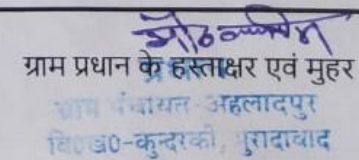 ग्राम प्रधान के हस्ताक्षर एवं मुहर
ग्राम पंचायत-अहलादपुर
वि०ख०-कुन्दरकी, मुरादाबाद